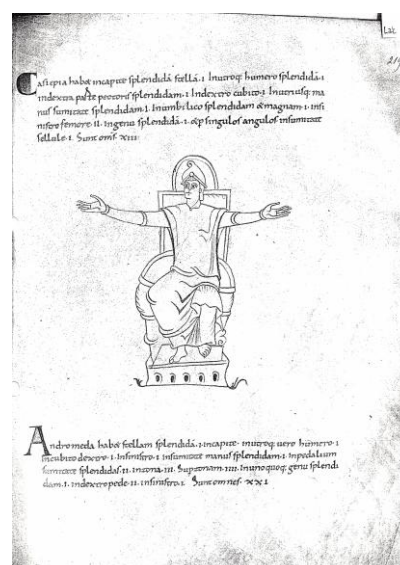 Lat.
219
Casiepia habet incapite splendidā stellā.i. Inutroq; humero splendidā.i
indextra parte pectoris splendidam.i. Indextro cubito.i. Inutriusq; ma
nus sumitate splendidam.i. Inumbilico splendidam & magnam.i. insi
nistro femore.ii. Ingenu splendidā.i. & p singulos angulos insumitate
sellule.i. Sunt oms̄. xiii
Andromeda habet stellam splendidā.i. incapite. inutroq; uero humero.i
Incubito dextro.i. Insinistro.i. insumitate manus splendidam.i. Inpedalium
sumitate splendidas.ii. inzona.iii. Supzonam.iiii. Inunoquoq; genu splendi
dam.i. Indextro pede.ii. insinistro.i. Sunt omnes. xxi